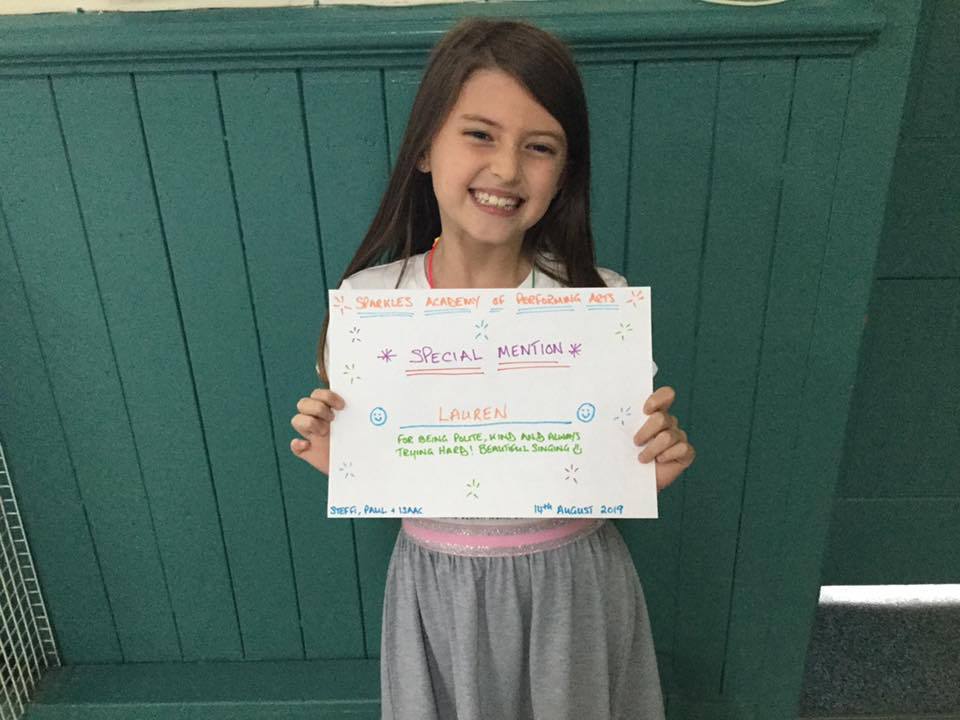 SPARKLES ACADEMY OF PERFORMING ARTS
SPECIAL MENTION
LAUREN
FOR BEING POLITE, KIND AND ALWAYS
TRYING HARD! BEAUTIFUL SINGING
STEFFI, PAUL + ISAAC
14th AUGUST 2019